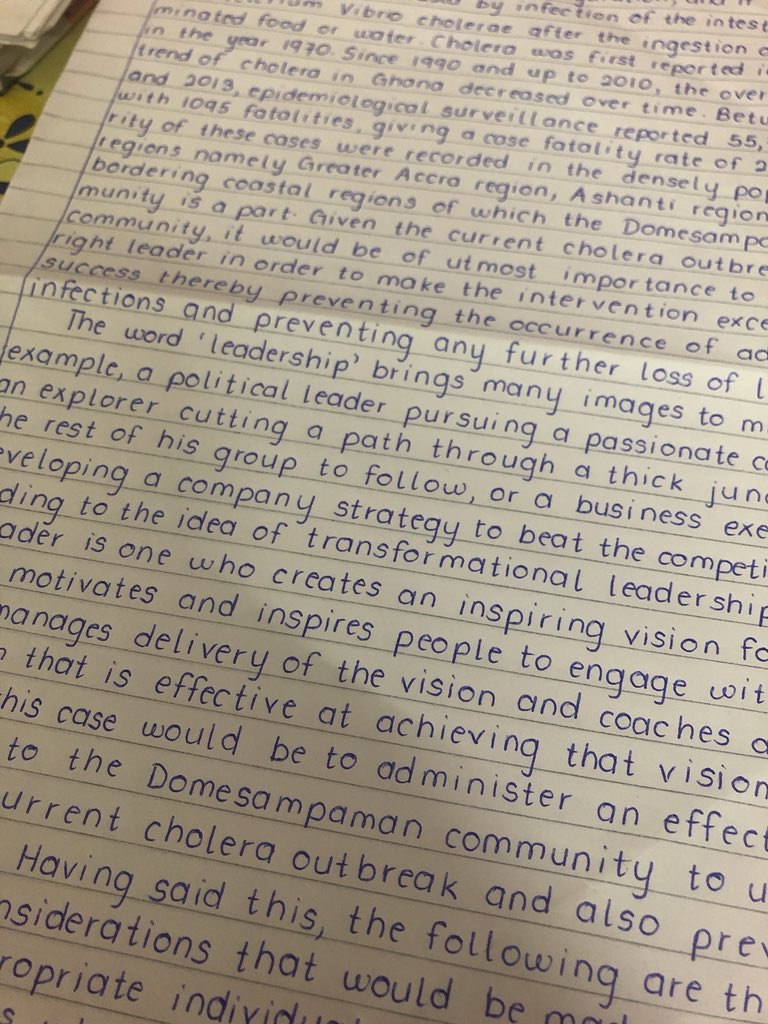 by infection of the intest
minated food or water. Cholera was first reported i
in the year 1970. Since 1990 and up to 2010, the over
trend of cholera in Ghana decreased over time. Betw
and 2013, epidemiological surveillance reported 55,
with 1095 fatalities, giving a case fatality rate of 2
rity of these cases were recorded in the densely pop
regions namely Greater Accra region, Ashanti region
bordering coastal regions of which the Domesampa
munity is a part. Given the current cholera outbre
community, it would be of utmost importance to
right leader in order to make the intervention exce
success thereby preventing the occurrence of ad
infections and preventing any further loss of l
The word 'leadership' brings many images to mi
example, a political leader pursuing a passionate c
an explorer cutting a path through a thick jun
he rest of his group to follow, or a business exe
eveloping a company strategy to beat the competi
ding to the idea of transformational leadership
ader is one who creates an inspiring vision fo
motivates and inspires people to engage wit
manages delivery of the vision and coaches a
n that is effective at achieving that vision
this case would be to administer an effect
to the Domesampaman community to u
urrent cholera outbreak and also prev
Having said this, the following are th
nsiderations that would be mad
ropriate individu